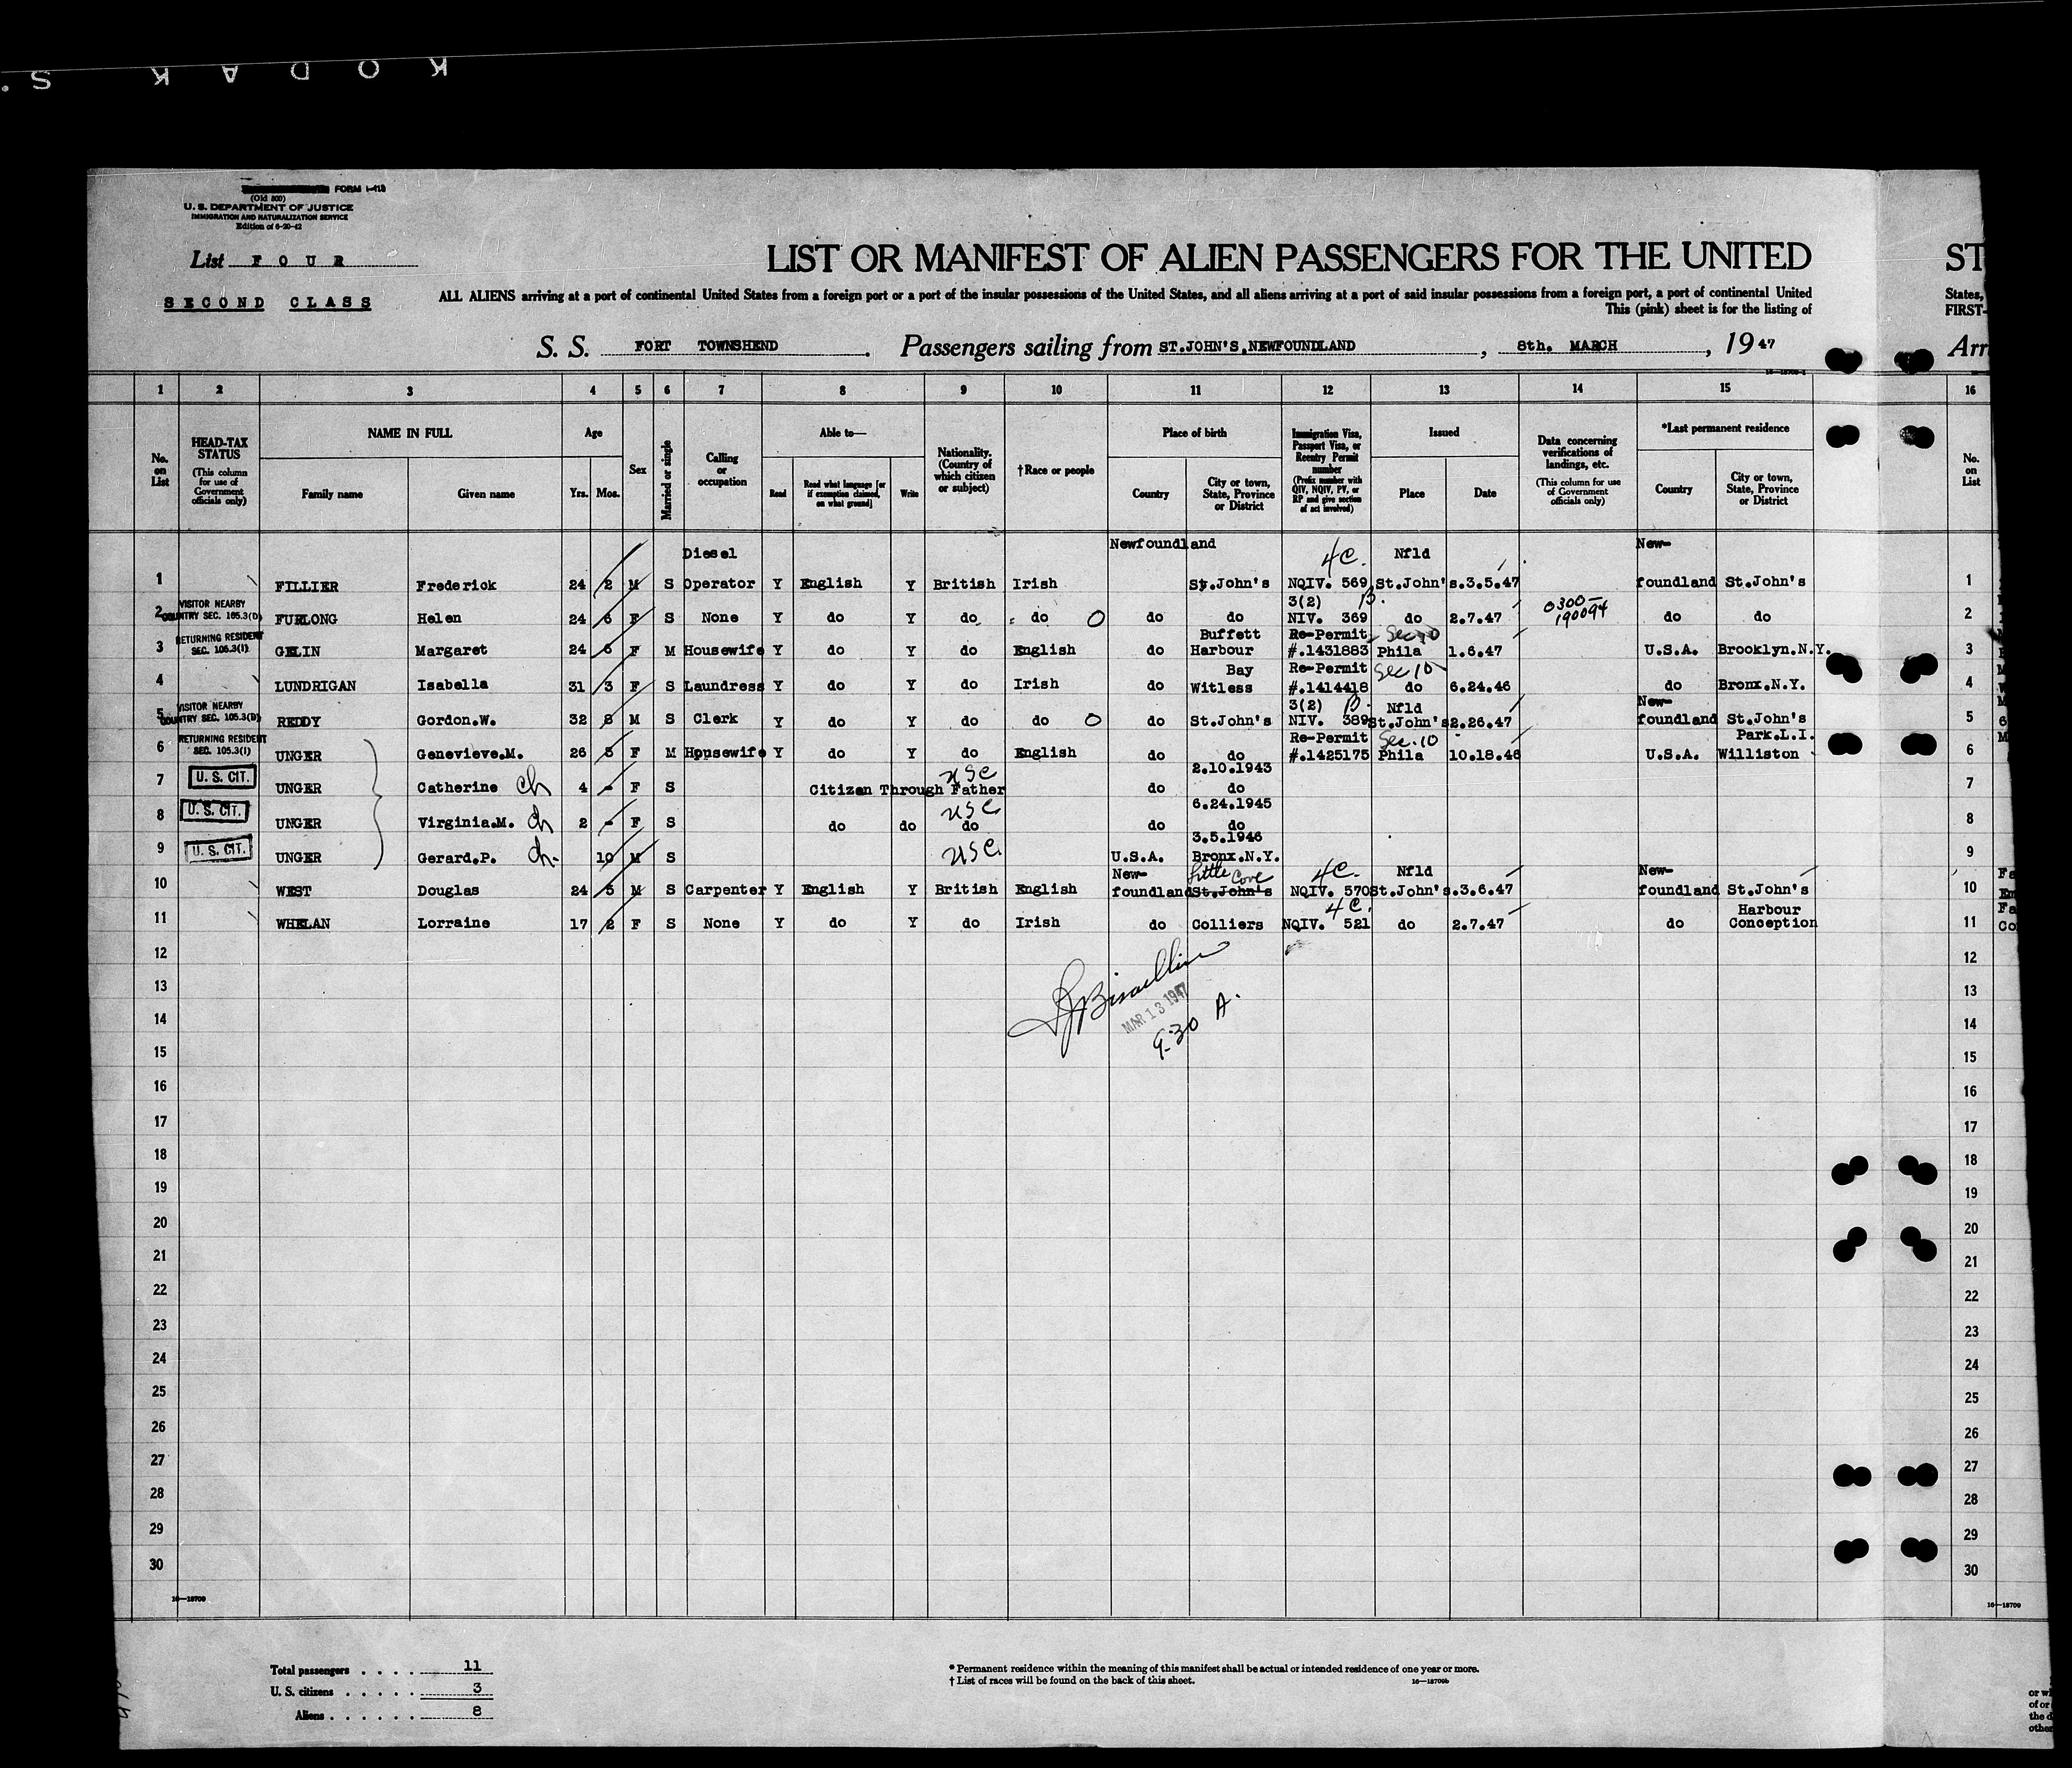 K O D A K S.
FORM I-418
(Old 800)
U. S. DEPARTMENT OF JUSTICE
IMMIGRATION AND NATURALIZATION SERVICE
Edition of 6-20-42
List F O U R
SECOND CLASS
LIST OR MANIFEST OF ALIEN PASSENGERS FOR THE UNITED ST
ALL ALIENS arriving at a port of continental United States from a foreign port or a port of the insular possessions of the United States, and all aliens arriving at a port of said insular possessions from a foreign port, a port of continental United States,
This (pink) sheet is for the listing of FIRST-
S. S. FORT TOWNSHEND. Passengers sailing from ST.JOHN'S,NEWFOUNDLAND, 8th. MARCH, 1947
1 2 3 4 5 6 7 8 9 10 11 12 13 14 15 16
No. on List
HEAD-TAX STATUS
(This column for use of Government officials only)
NAME IN FULL
Family name Given name
Age
Yrs. Mos.
Sex
Married or single
Calling or occupation
Able to—
Read Read what language [or if exemption claimed, on what ground] Write
Nationality. (Country of which citizen or subject)
†Race or people
Place of birth
Country City or town, State, Province or District
Immigration Visa, Passport Visa, or Reentry Permit number
(Prefix number with QIV, NQIV, PV, or RP and give section of act involved)
Issued
Place Date
Data concerning verifications of landings, etc.
(This column for use of Government officials only)
*Last permanent residence
Country City or town, State, Province or District
No. on List
Diesel Newfoundland 4C. Nfld New-
1 FILLIER Frederick 24 2 M S Operator Y English Y British Irish St.John's NQIV. 569 St.John's.3.5.47 foundland St.John's 1
VISITOR NEARBY COUNTRY SEC. 105.3(D) 3(2) B. 0300-
2 FURLONG Helen 24 6 F S None Y do Y do do O do do NIV. 369 do 2.7.47 190094 do do 2
RETURNING RESIDENT SEC. 105.3(I) Buffett Re-Permit
3 GELIN Margaret 24 6 F M Housewife Y do Y do English do Harbour #.1431883 Phila 1.6.47 U.S.A. Brooklyn.N.Y. 3
Bay Re-Permit Sec 10
4 LUNDRIGAN Isabella 31 3 F S Laundress Y do Y do Irish do Witless #.1414418 do 6.24.46 do Bronx.N.Y. 4
VISITOR NEARBY COUNTRY SEC. 105.3(D) 3(2) B. Nfld New-
5 REDDY Gordon.W. 32 8 M S Clerk Y do Y do do O do St.John's NIV. 389 St.John's 2.26.47 foundland St.John's 5
RETURNING RESIDENT SEC. 105.3(I) Re-Permit Sec. 10 Park.L.I.
6 UNGER Genevieve.M. 26 5 F M Housewife Y do Y do English do do #.1425175 Phila 10.18.46 U.S.A. Williston 6
U. S. CIT. USC 2.10.1943
7 UNGER Catherine ch 4 - F S Citizen Through Father do do 7
U. S. CIT. USC 6.24.1945
8 UNGER Virginia.M. ch 2 - F S do do do do do 8
U. S. CIT. USC 3.5.1946
9 UNGER Gerard.P. ch. 10 M S U.S.A. Bronx.N.Y. 9
New- Little Cove 4C. Nfld New-
10 WEST Douglas 24 5 M S Carpenter Y English Y British English foundland St.John's NQIV. 570 St.John's.3.6.47 foundland St.John's 10
4C. Harbour
11 WHELAN Lorraine 17 2 F S None Y do Y do Irish do Colliers NQIV. 521 do 2.7.47 do Conception 11
12 12
13 13
MAR 13 1947
14 14
9-30 A.
15 15
16 16
17 17
18 18
19 19
20 20
21 21
22 22
23 23
24 24
25 25
26 26
27 27
28 28
29 29
30 30
16—18709 16—18709
Total passengers . . . . 11
U. S. citizens . . . . . 3
Aliens . . . . . . 8
* Permanent residence within the meaning of this manifest shall be actual or intended residence of one year or more.
† List of races will be found on the back of this sheet. 16—18709b